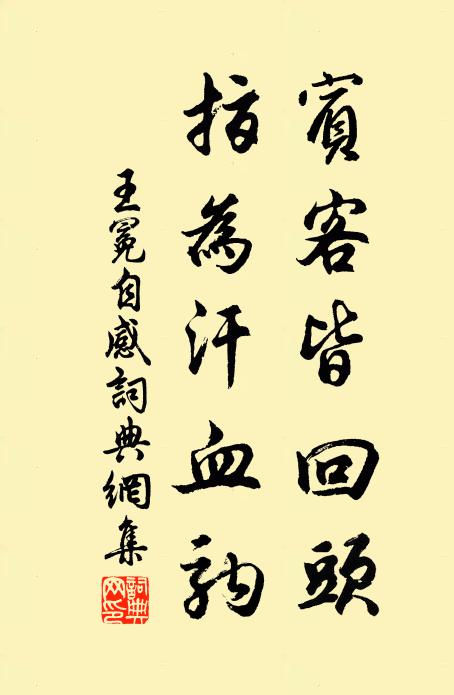 賓客皆回頭
指為汗血駒
王冕自感詞典網集
詞典
网印